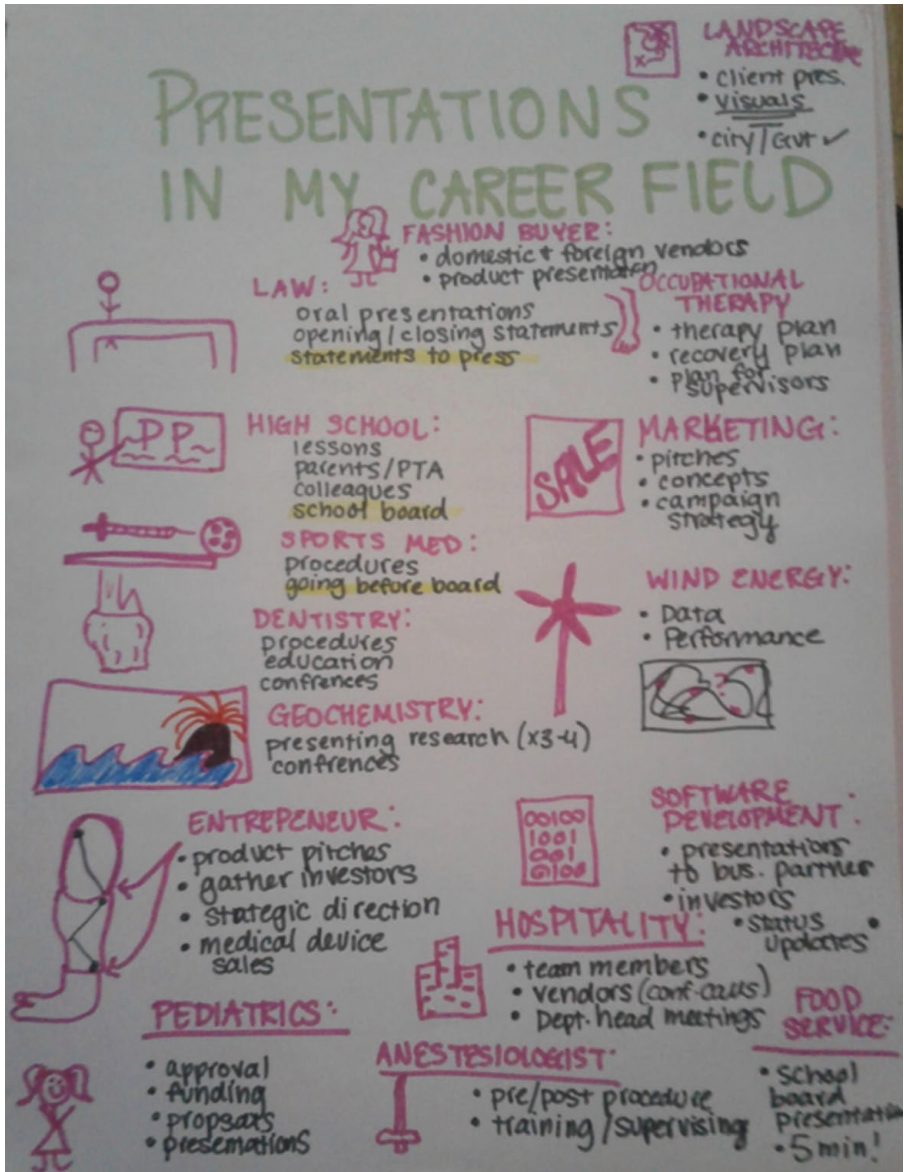 LANDSCAPE
ARCHITECTURE
• client pres.
• visuals
• city/Gvt ✓
PRESENTATIONS
IN MY CAREER FIELD
FASHION BUYER:
• domestic + foreign vendors
• product presentation
LAW:
oral presentations
opening/closing statements
statements to press
OCCUPATIONAL
THERAPY
• therapy plan
• recovery plan
• plan for
supervisors
HIGH SCHOOL:
lessons
parents/PTA
colleagues
school board
PP
SALE
MARKETING:
• pitches
• concepts
• campaign
strategy
SPORTS MED:
procedures
going before board
DENTISTRY:
procedures
education
confrences
WIND ENERGY:
• Data
• Performance
GEOCHEMISTRY:
presenting research (x3-4)
confrences
ENTREPENEUR:
• product pitches
• gather investors
• stategic direction
• medical device
sales
00100
1001
001
0100
SOFTWARE
DEVELOPMENT:
• presentations
to bus. partner
• investors
• status
updates
HOSPITALITY:
• team members
• vendors (conf-calls)
• Dept. head meetings
PEDIATRICS:
• approval
• funding
• propsals
• presentations
ANESTESIOLOGIST:
• pre/post procedure
• training/supervising
FOOD
SERVICE:
• school
board
presentation
• 5 min!